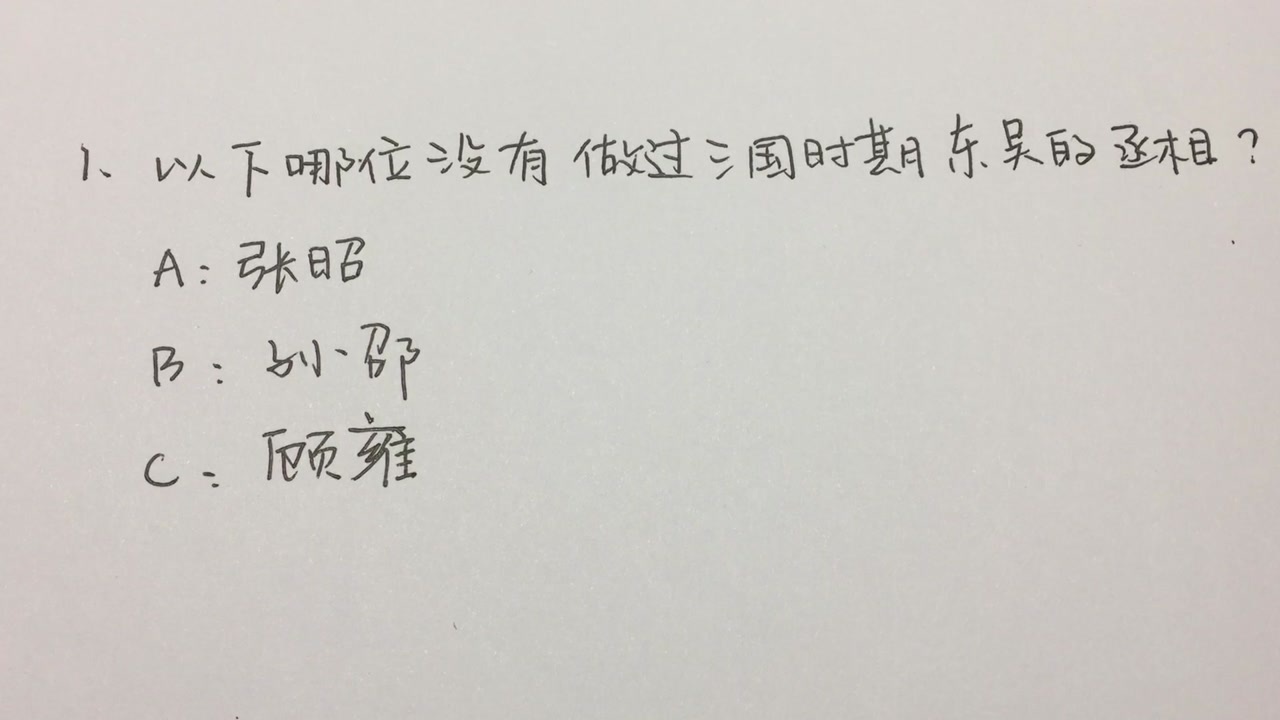 1、以下哪位没有做过三国时期东吴的丞相？
A：张昭
B：孙邵
C：顾雍